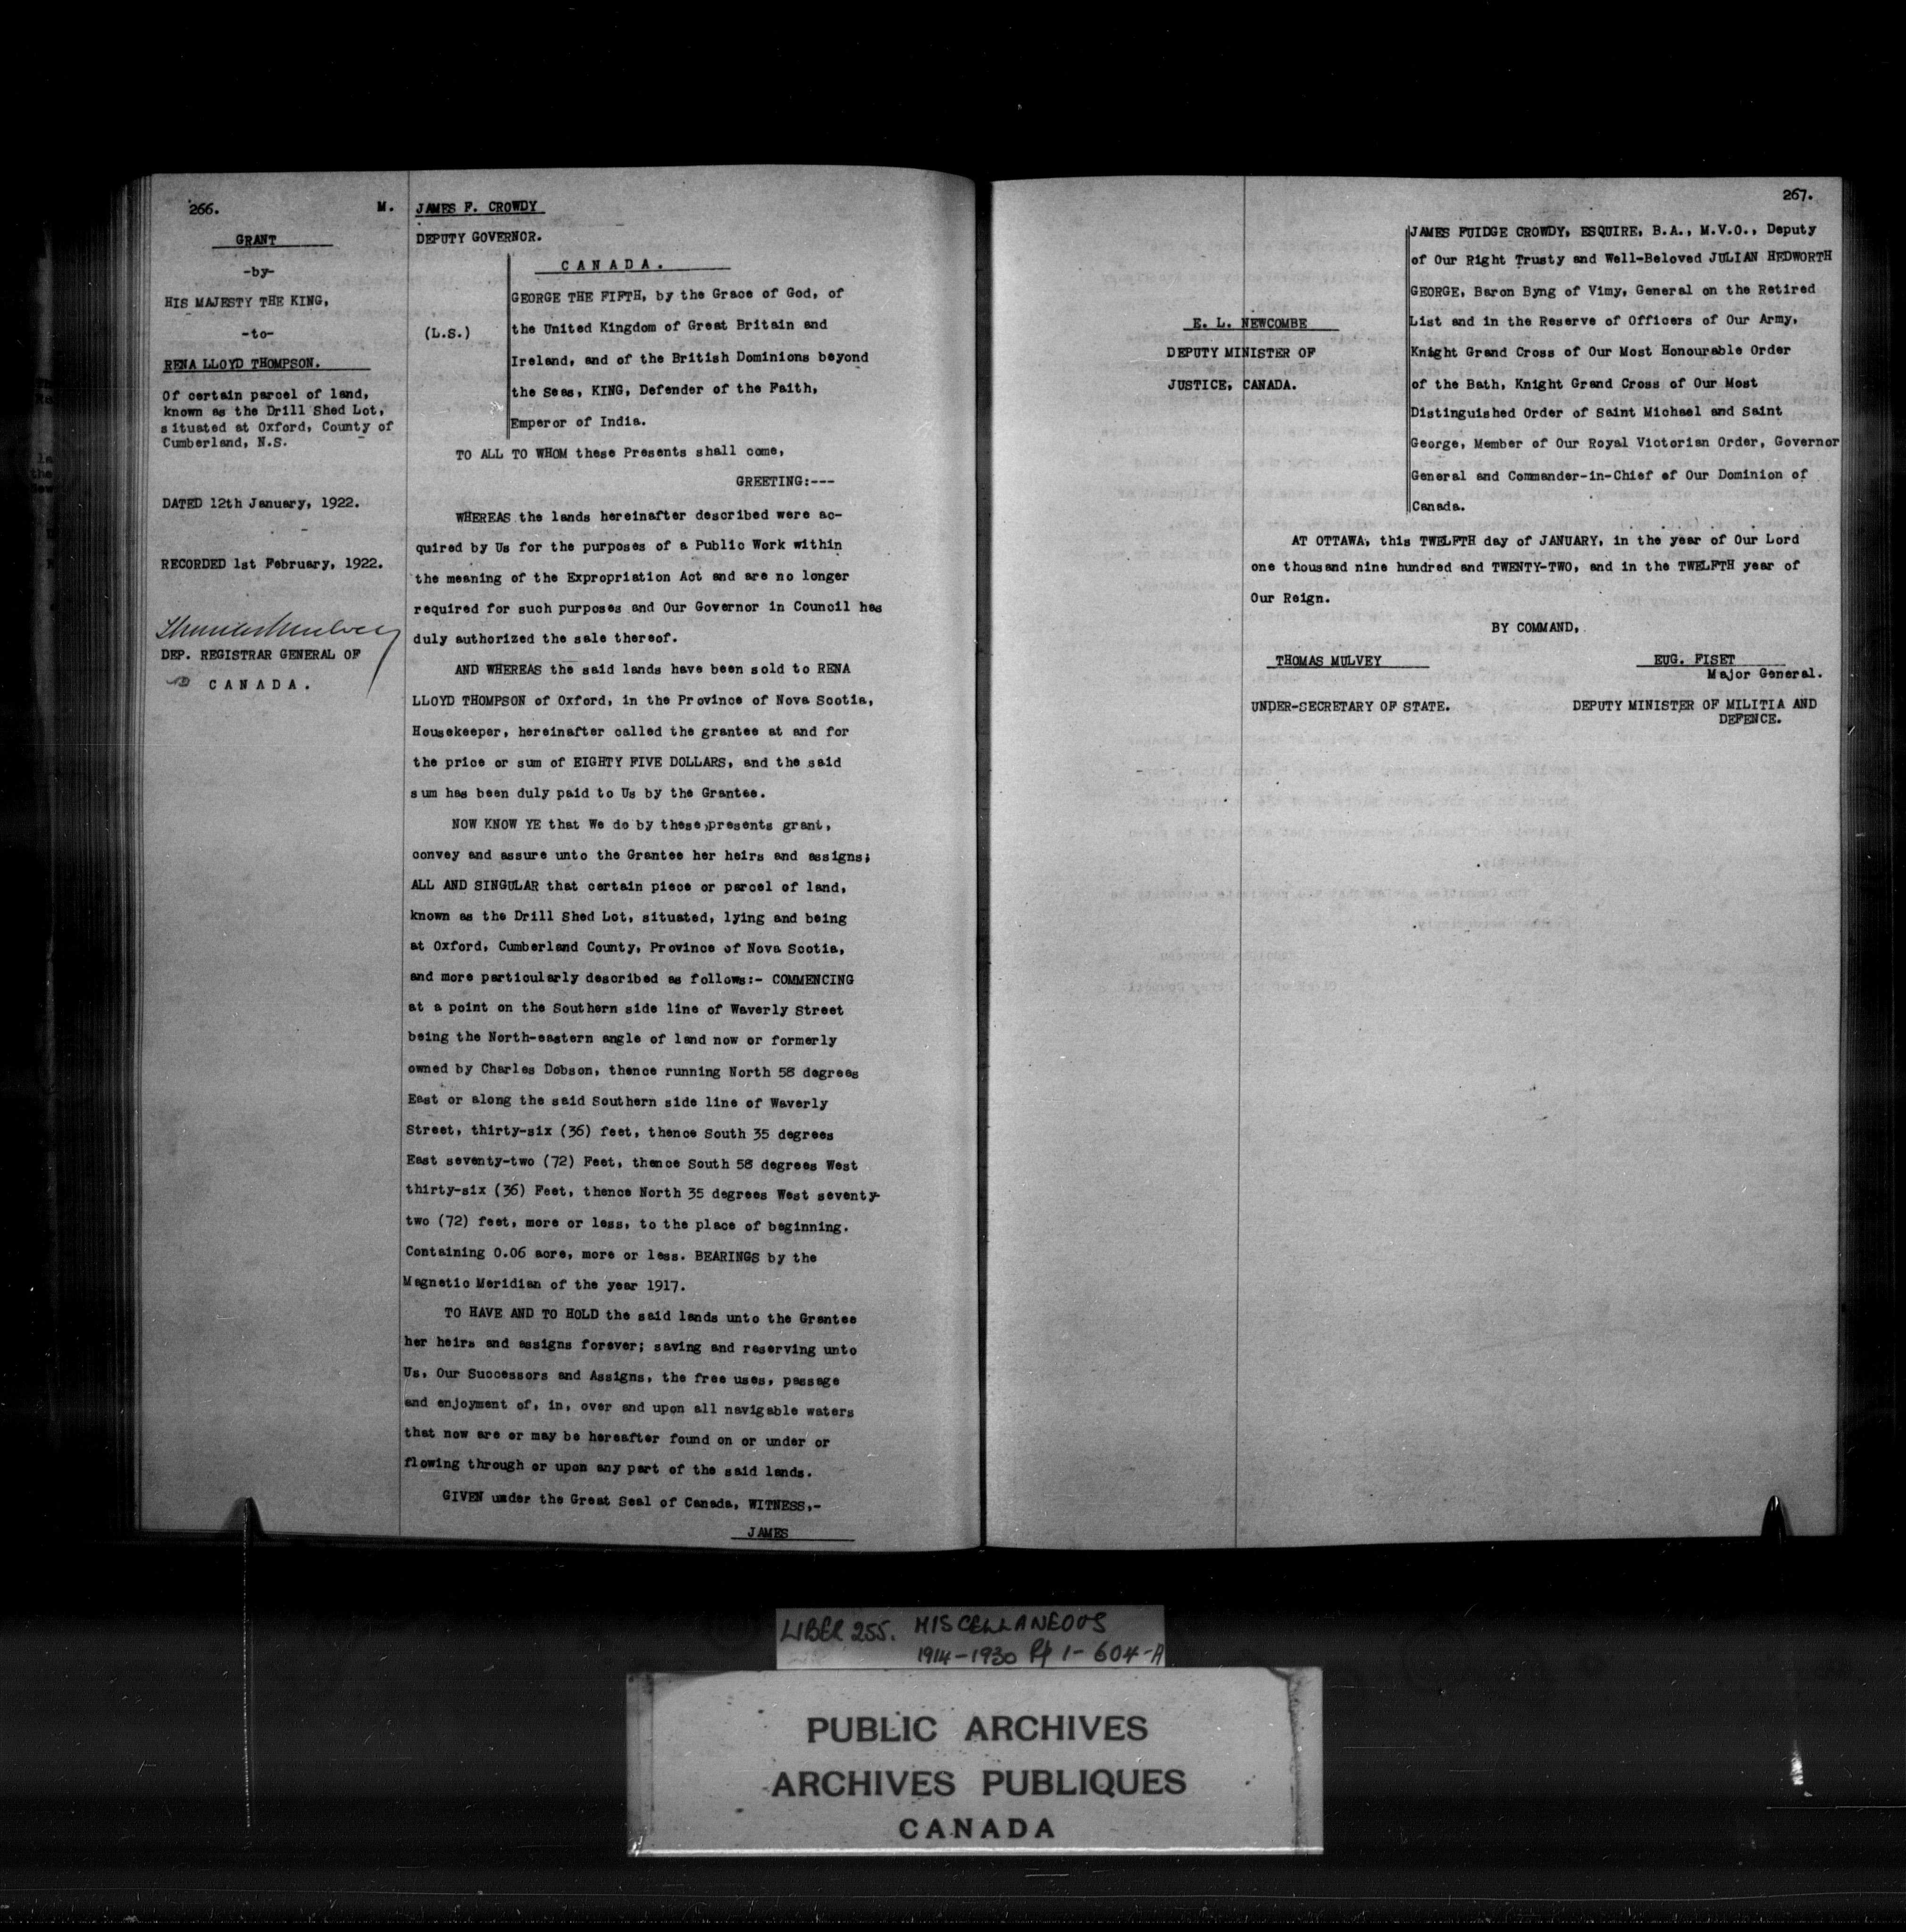 266.
GRANT
-by-
HIS MAJESTY THE KING,
-to-
RENA LLOYD THOMPSON.
Of certain parcel of land,
known as the Drill Shed Lot,
situated at Oxford, County of
Cumberland, N.S.
DATED 12th January, 1922.
RECORDED 1st February, 1922.
Thomas Mulvey
DEP. REGISTRAR GENERAL OF
CANADA.
M.
JAMES F. CROWDY
DEPUTY GOVERNOR.
CANADA.
(L.S.)
GEORGE THE FIFTH, by the Grace of God, of
the United Kingdom of Great Britain and
Ireland, and of the British Dominions beyond
the Seas, KING, Defender of the Faith,
Emperor of India.
TO ALL TO WHOM these Presents shall come,
GREETING:---
WHEREAS the lands hereinafter described were ac-
quired by Us for the purposes of a Public Work within
the meaning of the Expropriation Act and are no longer
required for such purposes and Our Governor in Council has
duly authorized the sale thereof.
AND WHEREAS the said lands have been sold to RENA
LLOYD THOMPSON of Oxford, in the Province of Nova Scotia,
Housekeeper, hereinafter called the grantee at and for
the price or sum of EIGHTY FIVE DOLLARS, and the said
sum has been duly paid to Us by the Grantee.
NOW KNOW YE that We do by these presents grant,
convey and assure unto the Grantee her heirs and assigns;
ALL AND SINGULAR that certain piece or parcel of land,
known as the Drill Shed Lot, situated, lying and being
at Oxford, Cumberland County, Province of Nova Scotia,
and more particularly described as follows:- COMMENCING
at a point on the Southern side line of Waverly Street
being the North-eastern angle of land now or formerly
owned by Charles Dobson, thence running North 58 degrees
East or along the said Southern side line of Waverly
Street, thirty-six (36) feet, thence South 35 degrees
East seventy-two (72) Feet, thence South 58 degrees West
thirty-six (36) Feet, thence North 35 degrees West seventy-
two (72) feet, more or less, to the place of beginning.
Containing 0.06 acre, more or less. BEARINGS by the
Magnetic Meridian of the year 1917.
TO HAVE AND TO HOLD the said lands unto the Grantee
her heirs and assigns forever; saving and reserving unto
Us, Our Successors and Assigns, the free uses, passage
and enjoyment of, in, over and upon all navigable waters
that now are or may be hereafter found on or under or
flowing through or upon any part of the said lands.
GIVEN under the Great Seal of Canada, WITNESS,-
JAMES
267.
JAMES FUIDGE CROWDY, ESQUIRE, B.A., M.V.O., Deputy
of Our Right Trusty and Well-Beloved JULIAN HEDWORTH
GEORGE, Baron Byng of Vimy, General on the Retired
List and in the Reserve of Officers of Our Army,
Knight Grand Cross of Our Most Honourable Order
of the Bath, Knight Grand Cross of Our Most
Distinguished Order of Saint Michael and Saint
George, Member of Our Royal Victorian Order, Governor
General and Commander-in-Chief of Our Dominion of
Canada.
E. L. NEWCOMBE
DEPUTY MINISTER OF
JUSTICE, CANADA.
AT OTTAWA, this TWELFTH day of JANUARY, in the year of Our Lord
one thousand nine hundred and TWENTY-TWO, and in the TWELFTH year of
Our Reign.
BY COMMAND,
THOMAS MULVEY
UNDER-SECRETARY OF STATE.
EUG. FISET
Major General.
DEPUTY MINISTER OF MILITIA AND
DEFENCE.
LIBER 255. MISCELLANEOUS
1914-1930 Pp 1-604-A
PUBLIC ARCHIVES
ARCHIVES PUBLIQUES
CANADA